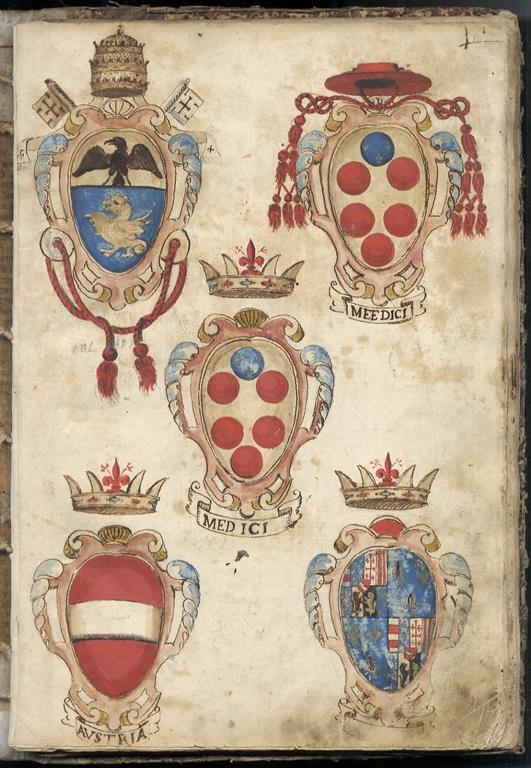 MEEDICI
MEDICI
AVSTRIA